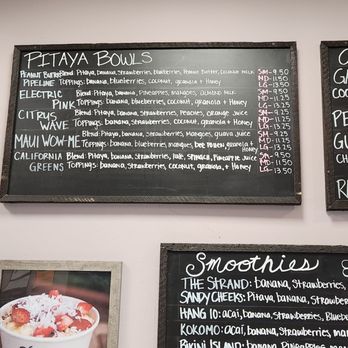 PITAYA BOWLS
PEANUT BUTTER Blend: Pitaya, banana, strawberries, blueberries, Peanut Butter, coconut milk SM-9.50
PIPELINE Toppings: banana, blueberries, coconut, granola + Honey MD-11.50
LG-13.25
ELECTRIC Blend: Pitaya, banana, pineapples, mangoes, almond milk SM-9.50
PINK Toppings: banana, blueberries, coconut, granola + Honey MD-11.25
LG-13.25
CITRUS Blend: Pitaya, banana, strawberries, Peaches, orange juice SM-9.25
WAVE Toppings: banana, strawberries, coconut, granola + Honey MD-11.25
LG-13.25
Blend: Pitaya, banana, strawberries, mangoes, guava juice
MAUI WOW-ME Toppings: banana, blueberries, mangoes, bee pollen, granola + Honey
LG-13.50
CALIFORNIA Blend: Pitaya, banana, strawberries, kale, spinach, Pineapple juice SM-9.50
GREENS Toppings: banana, strawberries, coconut, granola, + Honey MD-11.50
LG-13.25
C
GA
COO
PE
GU
RE
Smoothies
THE STRAND: banana, strawberries,
SANDY CHEEKS: Pitaya, banana, strawb
HANG 10: acai, banana, strawberries, Blueb
KOKOMO: acai, banana, strawberries, ma
BIKINI ISLAND: banana, pineapples, man